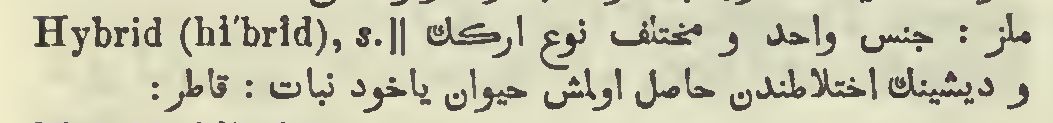 Hybrid (hī′brĭd), s. || ملز : جنس واحد و مختلف نوع ارکك
و دیشینك اختلاطندن حاصل اولمش حیوان یاخود نبات : قاطر :